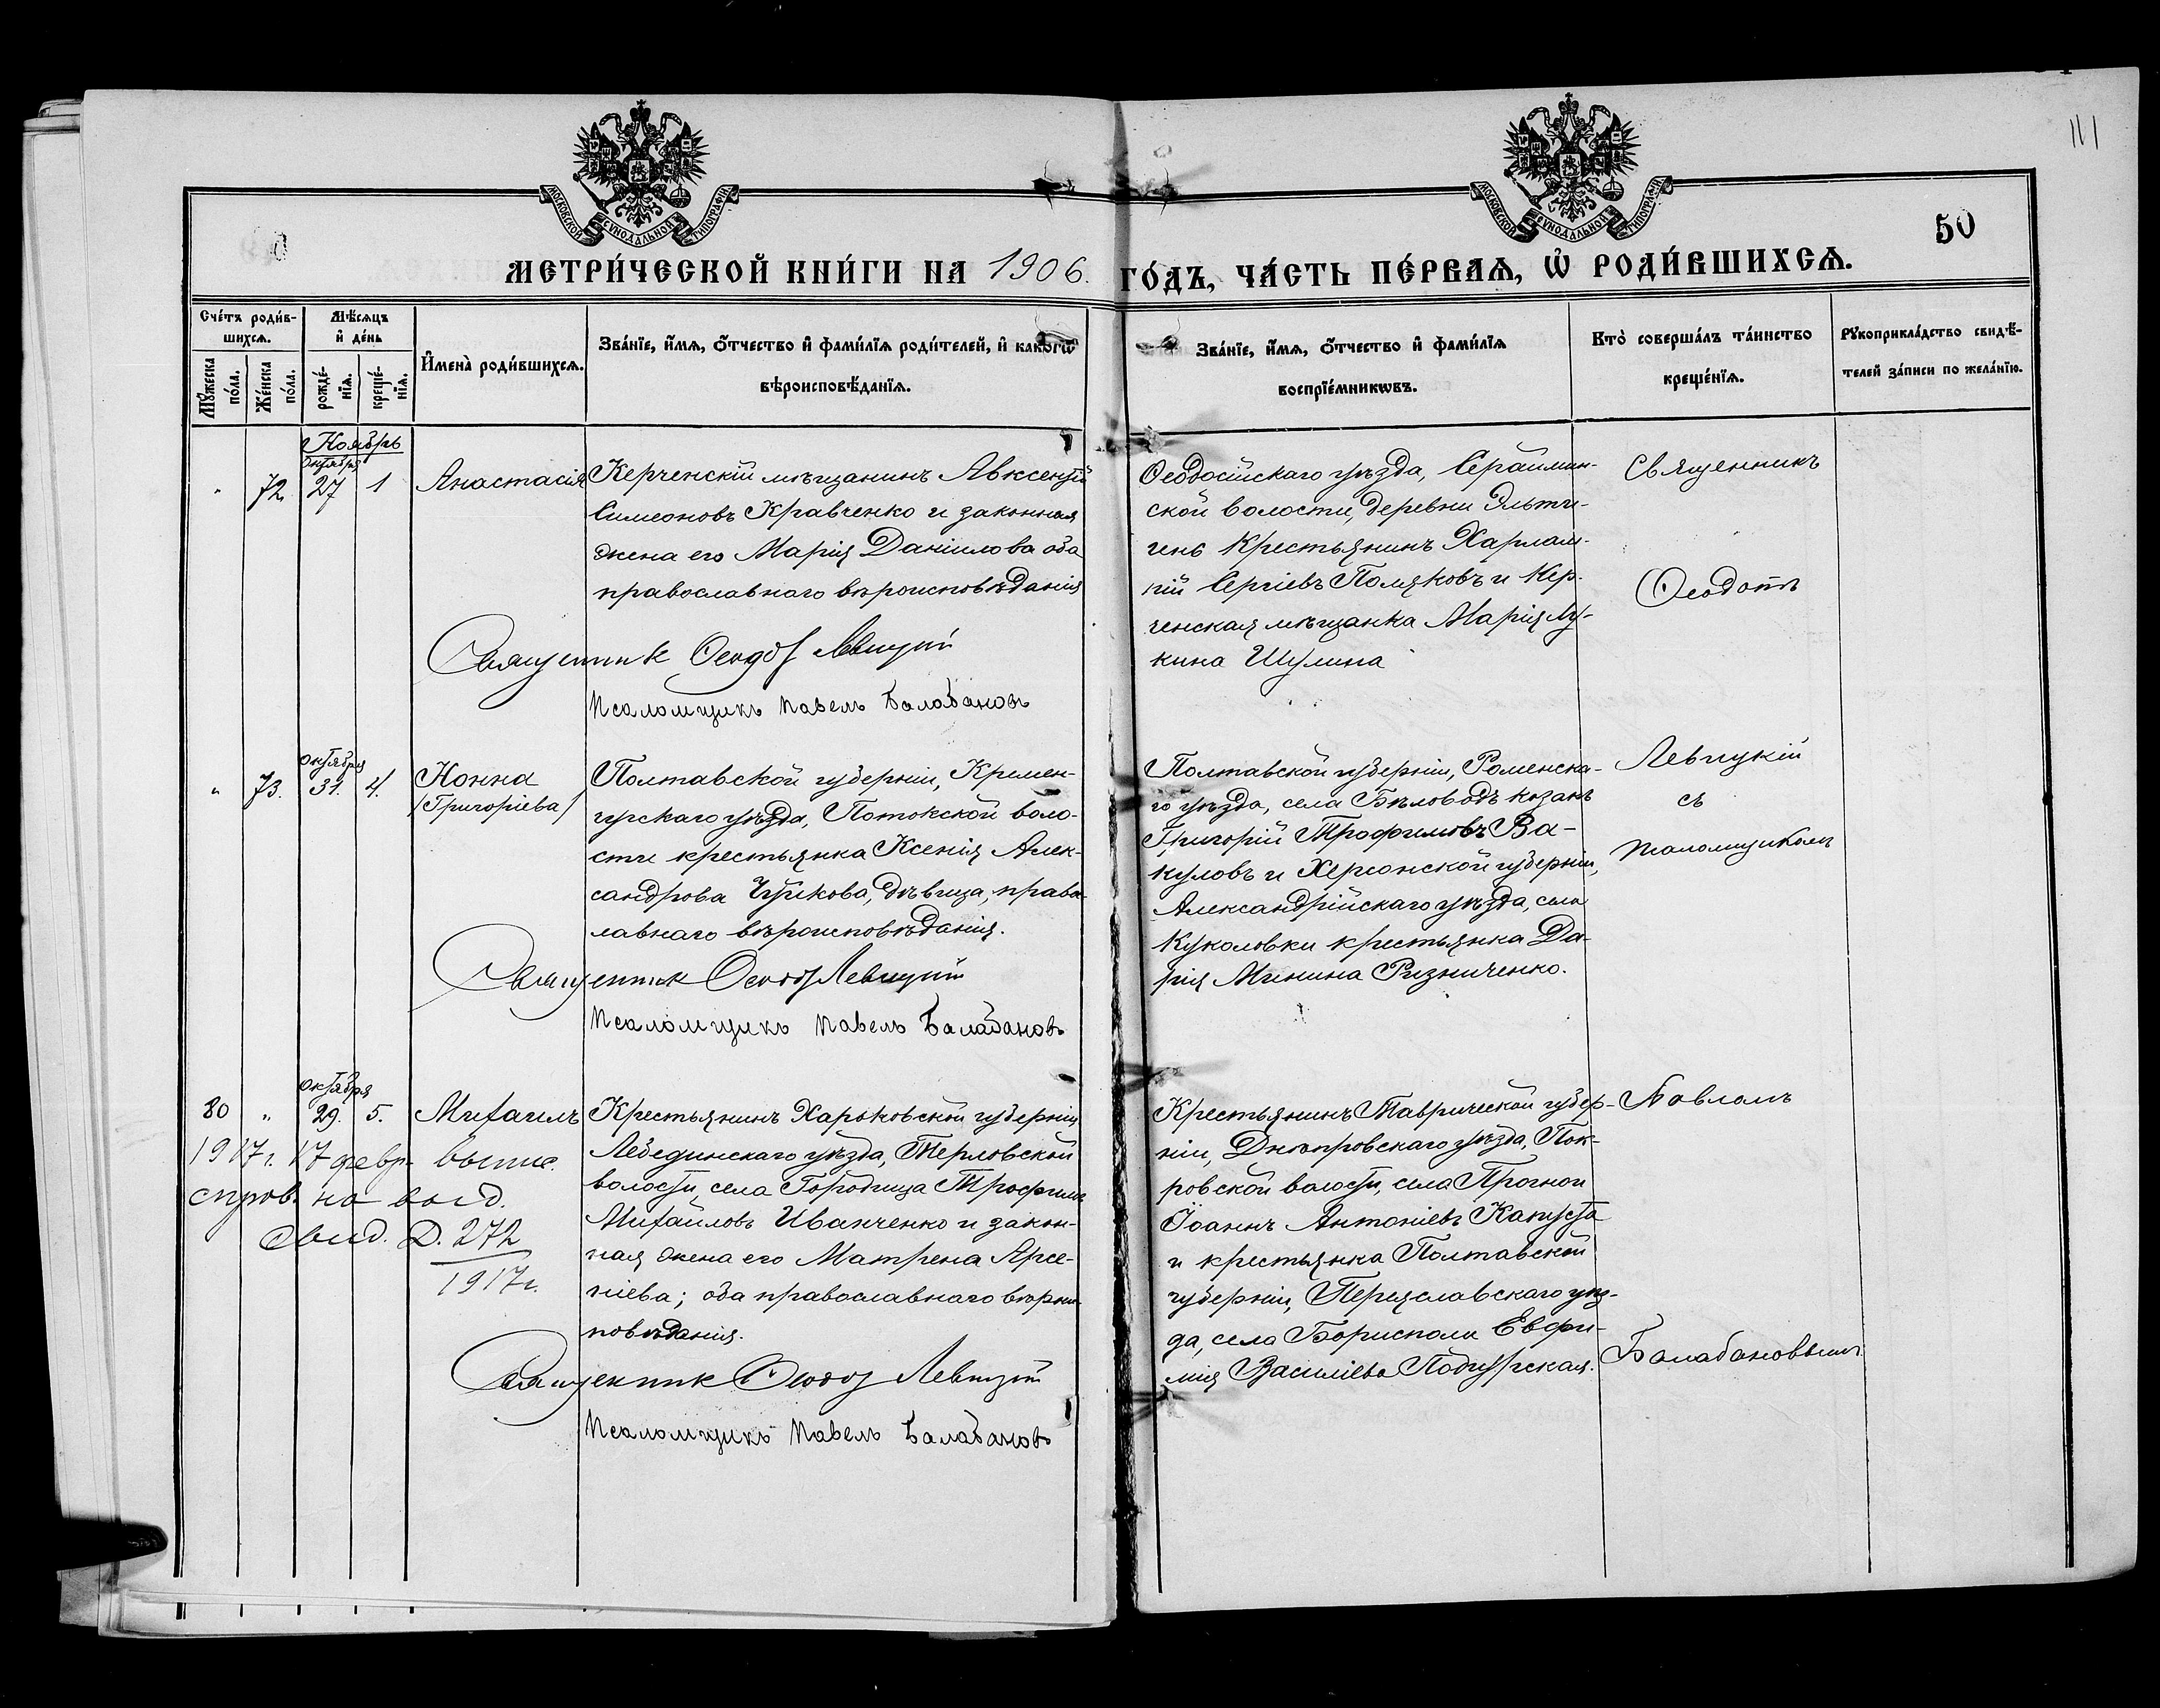 111
50
МОСКОВСКОЙ СѴНОДАЛЬНОЙ ТИПОГРАФІИ
МОСКОВСКОЙ СѴНОДАЛЬНОЙ ТИПОГРАФІИ
МЕТРИ́ЧЕСКОЙ КНИ́ГИ НА 1906. ГО́ДЪ, ЧА́СТЬ ПЕ́РВАѦ, Ѡ҆ РОДИ́ВШИХСѦ.
Сче́тъ роди́в-
шихсѧ.
Мꙋ́жеска по́ла.
Же́нска по́ла.
Мѣ́сѧцъ и҆ де́нь
рожде́-нїѧ.
креще́-нїѧ.
И҆мена̀ роди́вшихсѧ.
Зва́нїе, и҆́мѧ, ѻ҆́тчество и҆ фами́лїѧ роди́телей, и҆ како́гѡ
вѣроисповѣ́данїѧ.
Зва́нїе, и҆́мѧ, ѻ҆́тчество и҆ фами́лїѧ
воспрїе́мникѡвъ.
Кто̀ соверша́лъ та́инство
креще́нїѧ.
Рꙋкоприкла́дство свидѣ́-
телей за́писи по жела́нїю.
Ноябрь
Октября
" 72. 27 1 Анастасія
Керченскій мѣщанинъ Авксентій
Симеоновъ Кравченко и законная
жена его Марія Даніилова оба
православнаго вѣроисповѣданія
Священник Феодот Левицкій
Псаломщикъ Павелъ Балабановъ
Ѳеодосійскаго уѣзда, Сараймин-
ской волости, деревни Эльти-
генъ Крестьянинъ Харлам-
пій Сергіевъ Поляковъ и Кер-
ченская мѣщанка Марія Лу-
кина Шулина
Священникъ
Ѳеодотъ
Октября
" 73. 31. 4. Нонна
/Григоріева/
Полтавской губерніи, Кремен-
чугскаго уѣзда, Потокской воло-
сти крестьянка Ксенія Алек-
сандрова Чуйкова, дѣвица, право-
лавнаго вѣроисповѣданія.
Священник Феодот Левицкій
Псаломщикъ Павелъ Балабановъ
Полтавской губерніи, Роменска-
го уѣзда, села Бѣловодъ козакъ
Григорій Трофимовъ Ва-
куловъ и Херсонской губерніи,
Александрійскаго уѣзда, села
Куколовки крестьянка Да-
рія Минина Ризниченко.
Левицкій
съ
псаломщикомъ
Октября
80 " 29. 5. Михаилъ
1917г. 17 февр. выпис.
справ. на выд.
свид. Д. 272
1917г.
Крестьянинъ Харьковской губерніи
Лебединскаго уѣзда, Терловской
волости, села Городища Трофимъ
Михайловъ Иванченко и закон-
ная жена его Матрена Арсе-
ніева; оба православнаго вѣроис-
повѣданія.
Священник Феодот Левицкій
Псаломщикъ Павелъ Балабановъ
Крестьянинъ Таврической губер-
ніи, Днѣпровскаго уѣзда, Пок-
ровской волости, села Прогнои
Іоаннъ Антоніевъ Капуста
и крестьянка Полтавской
губерніи, Переяславскаго уѣз-
да, села Борисполи Евфи-
мія Василіева
Павломъ
Балабановымъ